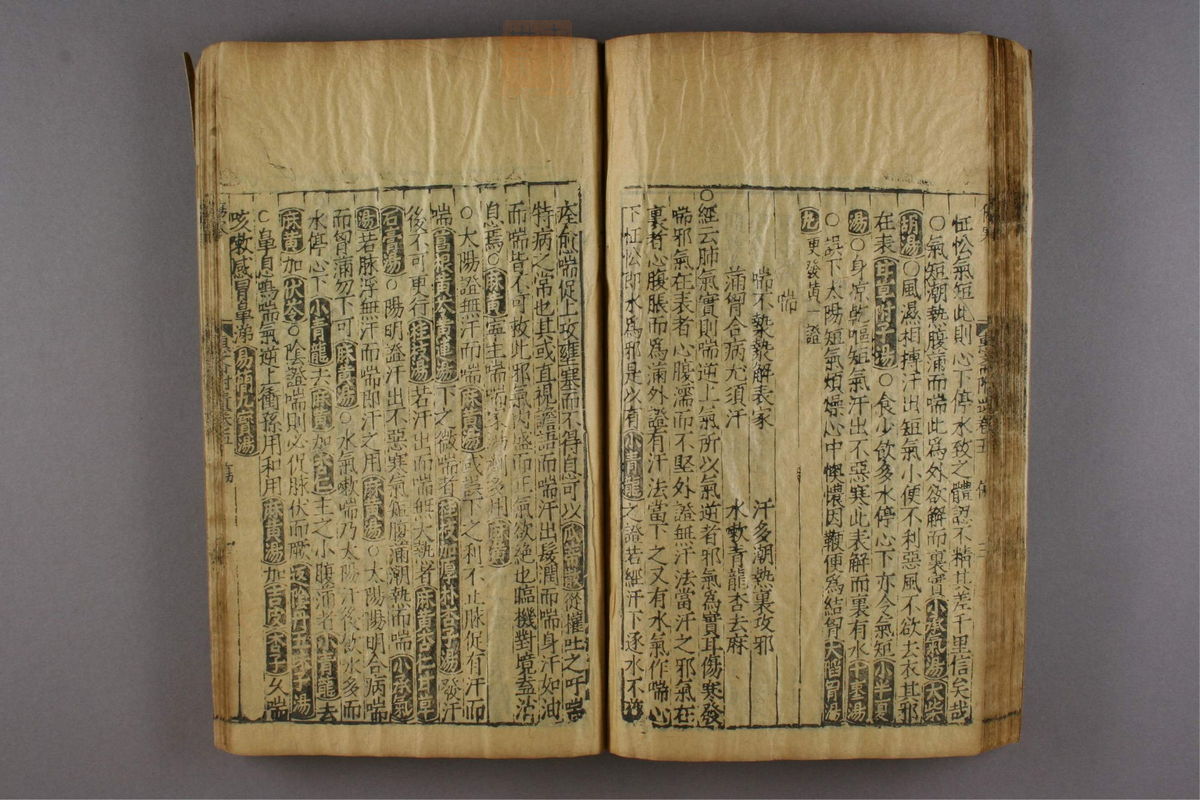 怔忪氣短此則心下停水致之體認不精其差千里信矣哉
○氣短潮熱腹滿而喘此為外欲解而裏實小承氣湯大柴
胡湯○風濕相搏汗出短氣小便不利惡風不欲去衣其邪
在表甘草附子湯○食少飲多水停心下亦令氣短小半夏
湯○身涼乾嘔短氣汗出不惡寒此表解而裏有水十棗湯
○誤下太陽短氣煩燥心中懊憹因鞕便為結胷大陷胷湯
丸更發黃一證
喘
喘不熱發解表家 汗多潮熱裏攻邪
滿胷合病尤須汗 水嗽青龍杏去麻
○經云肺氣實則喘逆上氣所以氣逆者邪氣為實耳傷寒發
喘邪氣在表者心腹濡而不堅外證無汗法當汗之邪氣在
裏者心腹脹而為滿外證有汗法當下之又有水氣作喘心
下怔忪即水為邪是以有小青龍之證若經汗下逐水不
痊愈喘促上攻雍塞而不得息可以瓜蒂散從權吐之吁喘
特病之常也其或直視譫語而喘汗出髮潤而喘身汗如油
而喘皆不可救此邪氣內盛而正氣欲絕也臨機對境盍
息焉○麻黃實主喘喘家湯劑多用麻黃
○太陽證無汗而喘麻黃湯或誤下之利不止脉促有汗而
喘葛根黃芩黃連湯下之微喘者桂枝加厚朴杏子湯發汗
後不可更行桂枝湯若汗出而喘無大熱者麻黃杏仁甘草
石膏湯○陽明證汗出不惡寒氣短腹滿潮熱而喘小承氣
湯若脉浮無汗而喘即汗之用麻黃湯○太陽陽明合病喘
而胷滿勿下可麻黃湯○水氣嗽喘乃太陽汗後飲水多而
水停心下小青龍去麻黃加杏仁主之小腹滿者小青龍去
麻黃加伏苓○陰證喘則必促脉伏而厥返陰丹五味子湯
○鼻息鳴喘氣逆上衝孫用和用麻黃湯加吉皮杏子久喘
咳嗽感冒鼻涕易簡九寶湯